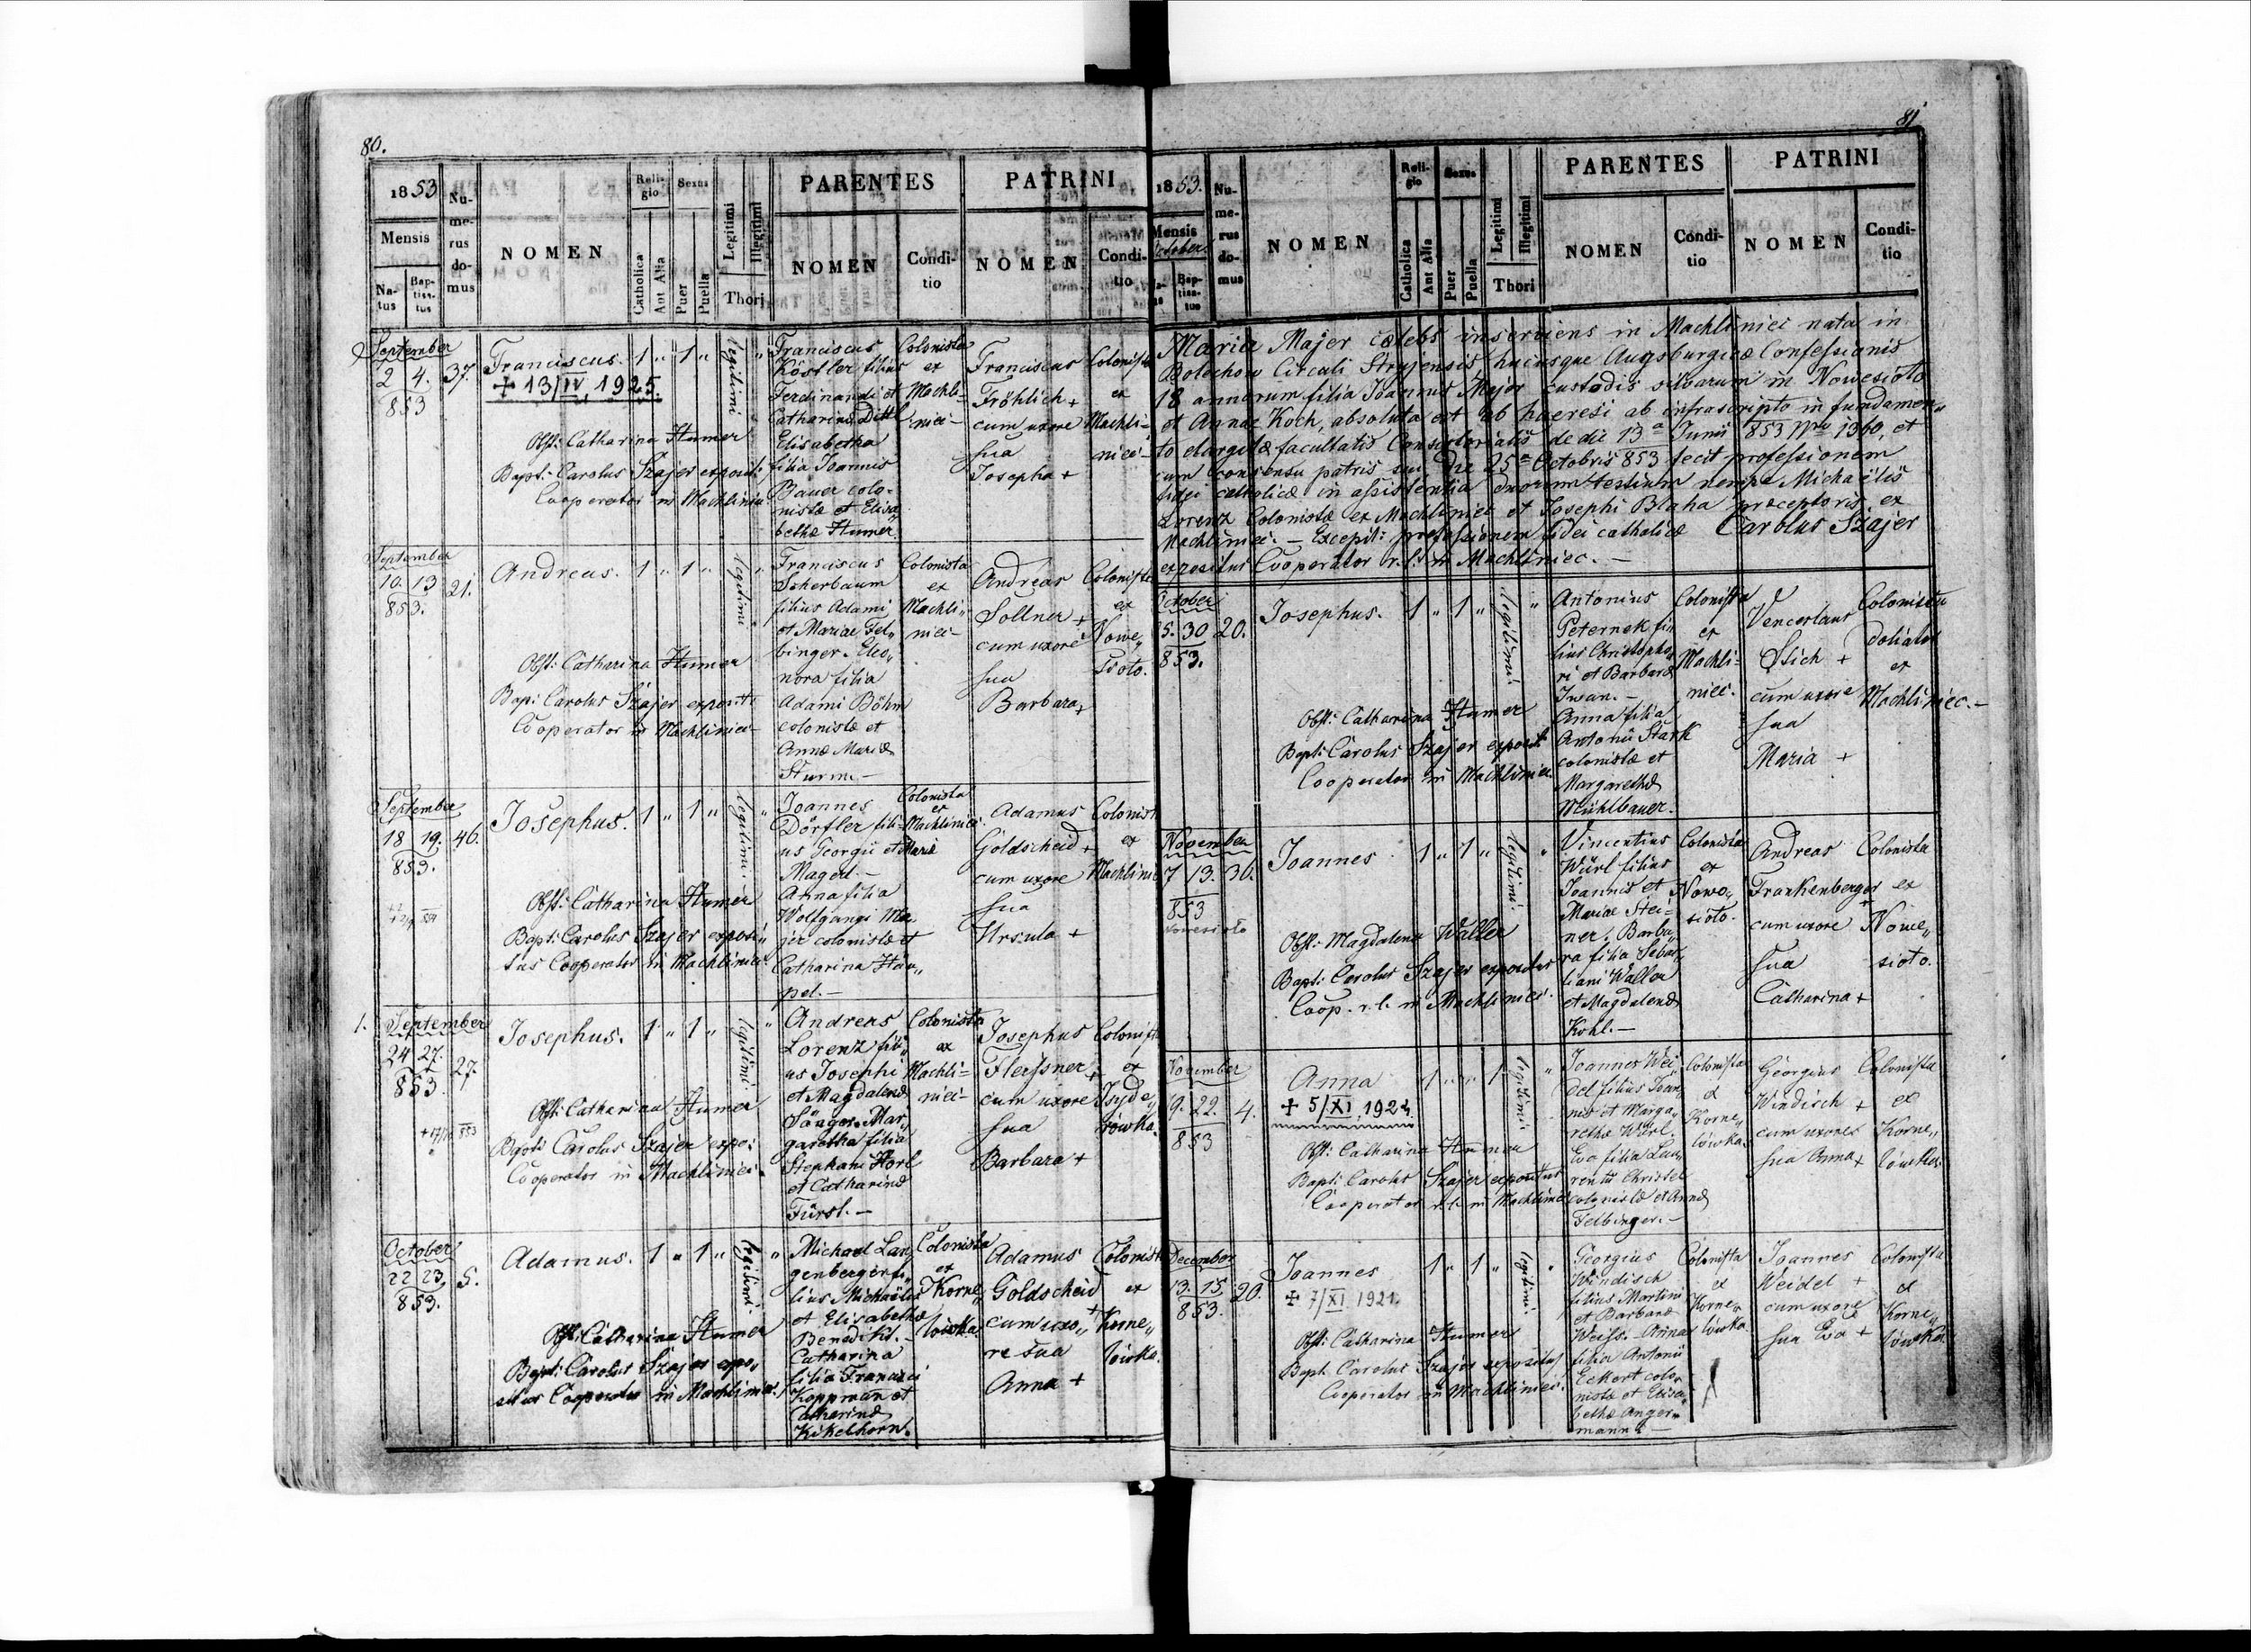 80.
1853
Mensis
Na-
tus
Bap-
tisa-
tus
Nu-
me-
rus
do-
mus
NOMEN
Reli-
gio
Catholica
Aut Alia
Sexus
Puer
Puella
Legitimi
Illegitimi
Thori
PARENTES
NOMEN
Condi-
tio
PATRINI
NOMEN
Condi-
tio
September
2 4. 37.
853
Franciscus. 1 " 1 "
legitimi
"
+ 13/IV 1925.
Obst: Catharina Humer
Bapt. Carolus Szajer exposit:
Cooperator in Machliniec
Franciscus
Köstler filius
Ferdinandi et
Catharinæ Dittl
Elisabetha
filia Joannis
Bauer colo-
nistæ et Elisa
bethæ Humer
Colonista
ex
Machli-
niec-
Franciscus
Fröhlich +
cum uxore
sua
Josepha +
Colonista
ex
Machli-
niec-
September
10. 13 21.
853.
Andreas. 1 " 1 "
legitimi
"
Obst: Catharina Humer
Bap: Carolus Szajer exposit:
Cooperator in Machliniec-
Franciscus
Scherbaum
filius Adami
et Mariæ Fel„
binger. Eleo„
nora filia
Adami Böhm
colonistæ et
Annæ Mariæ
Sturm. -
Colonista
ex
Machli„
niec-
Andreas
Sollner +
cum uxore
sua
Barbara +
Colonista
ex
Nowe„
sioło.
September
18 19. 46.
853.
Josephus. 1 " 1 "
legitimi.
"
Obst: Catharina Humer
Bapt: Carolus Szajer exposi„
tus Cooperator in Machliniec.
Joannes
Dörfler fili-
us Georgii et Mariæ
Magerl. -
Anna filia
Wolfgangi Ma
jer colonistæ et
Catharina Häu„
pel. -
Colonista
ex
Machliniec.
Adamus
Goldscheid +
cum uxore
sua
Urszula +
Colonist
ex
Machlinie
1. September
24 27. 27.
853
Josephus. 1 " 1 "
legitimi
"
Obst: Catharina Humer
+ 17/10 853
Bapt: Carolus Szajer expo:
Cooperator in Machliniec-
Andreas
Lorenz fili„
us Josephi
et Magdalenæ
Sänger. Mar„
garetha filia
Stephani Horl
et Catharinæ
Fürst. -
Colonista
ex
Machli-
niec-
Josephus
Fleissner +
cum uxore
sua
Barbara +
Colonist
ex
Isyde„
rówka.
October
22 23, 5.
853.
Adamus. 1 " 1 "
legitimi.
"
Obst: Catharina Humer
Bapt: Carolus Szajer expo„
situs Cooperator in Machliniec.
Michael Lan„
genberger fi„
lius Michaëlis
et Elisabethæ
Benedikt. -
Catharina
filia Francisci
Koppman et
Catharinæ
Kikelhorn.
Colonista
ex
Korne„
lówka.
Adamus
Goldscheid +
cum uxo„
re sua
Anna +
Colonist
ex
Korne„
lówka.
81
1853.
Mensis
Octobers
Na-
tus
Bap-
tisa-
tus
Nu-
me-
rus
do-
mus
NOMEN
Reli-
gio
Catholica
Aut Alia
Sexus
Puer
Puella
Legitimi
Illegitimi
Thori
PARENTES
NOMEN
Condi-
tio
PATRINI
NOMEN
Condi-
tio
Maria Majer cœlebs inserviens in Machliniec nata in
Bolechow Circuli Stryjensis hucusque Augsburgicæ Confessionis
18 annorum filia Joannis Majer custodis silvarum in Nowesioło
et Annæ Koch, absoluta est ab haeresi ab infrascripto in fundamen„
to elargitæ facultatis Consistorialis de die 13a Junii 853 Nro 1360, et
cum consensu patris sui die 25a Octobris 853 fecit professionem
fidei catholicæ in assistentia duorum testium nempe Michaëlis
Lorenz Colonistæ ex Machliniec et Josephi Blaha præceptoris ex
Machliniec. - Excepit: professionem fidei catholicæ Carolus Szajer
expositus Cooperator r. l. in Machliniec. -
October
25. 30 20.
853.
Josephus. 1 " 1 "
legitimi.
"
Obst: Catharina Humer
Bapt: Carolus Szajer exposit
Cooperator in Machliniec
Antonius
Peternek fi„
lius Christopho„
ri et Barbaræ
Iwan. -
Anna filia
Antonii Stark
colonistæ et
Margarethæ
Mühlbauer.
Colonista
ex
Machli-
niec.
Venceslaus
Stich +
cum uxore
sua
Maria +
Colonista
doliator
ex
Machliniec. -
November
7 13. 36.
853
Nowesioło
Joannes 1 " 1 "
legitimi.
"
Obst: Magdalena Waller
Bapt: Carolus Szajer expositus
Coop. r. l. in Machliniec.
Vincentius
Würl filius
Joannis et
Mariæ Stei-
ner, Barba„
ra filia Sebas„
tiani Waller
et Magdalenæ
Kohl. -
Colonista
ex
Nowo„
sioło.
Andreas
Frankenberger +
cum uxore
sua
Catharina +
Colonista
ex
Nowe„
sioło.
November
19. 22. 4.
853
Anna 1 " " 1
legitimi
"
+ 5/XI 1924.
Obst: Catharina Humer
Bapt: Carolus Szajer expositus
Cooperator r. l. in Machliniec
Joannes Wei„
del filius Joan„
nis et Marga„
rethæ Würl.
Eva filia Lau„
rentii Christel
colonistæ et Annæ
Felbinger. -
Colonista
ex
Korne„
lówka.
Georgius
Windisch +
cum uxore
sua Anna +
Colonista
ex
Korne„
lówka.
December
13. 15. 20.
853.
Joannes 1 " 1 "
legitimi.
"
+ 7/XI 1921.
Obst: Catharina Humer
Bapt. Carolus Szajer expositus
Cooperator in Machliniec.
Georgius
Windisch
filius Martini
et Barbaræ
Weiss. Anna
filia Antonii
Eckert colo„
nistæ et Elisa„
bethæ Anger„
mann -
Colonista
ex
Korne„
lówka
Joannes
Weidel +
cum uxore
sua Eva +
Colonista
ex
Korne„
lówka.